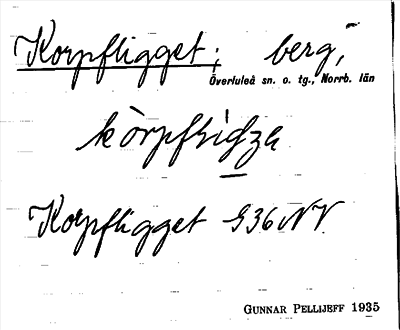 Korpfligget; berg,
Överluleå sn. o. tg., Norrb. län
Korpfligget G36NV
GUNNAR PELLIJEFF 1935